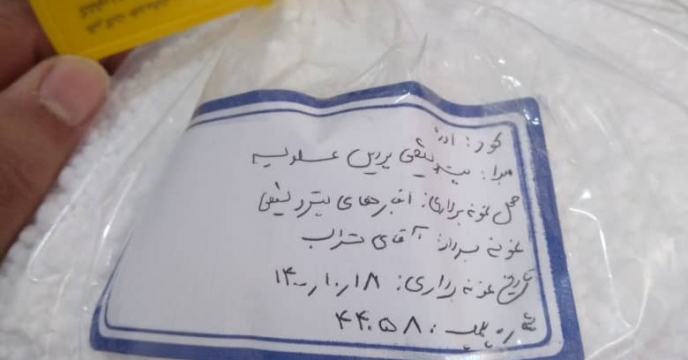 کود: اوره
مبدا: پتروشیمی پردیس عسلویه
محل نمونه برداری: انبارهای پتروشیمی
نمونه بردار: آقای تراب
تاریخ نمونه برداری: ۱۴۰۰/۱۰/۱۸
شماره پلمپ: ۴۴۰۵۸